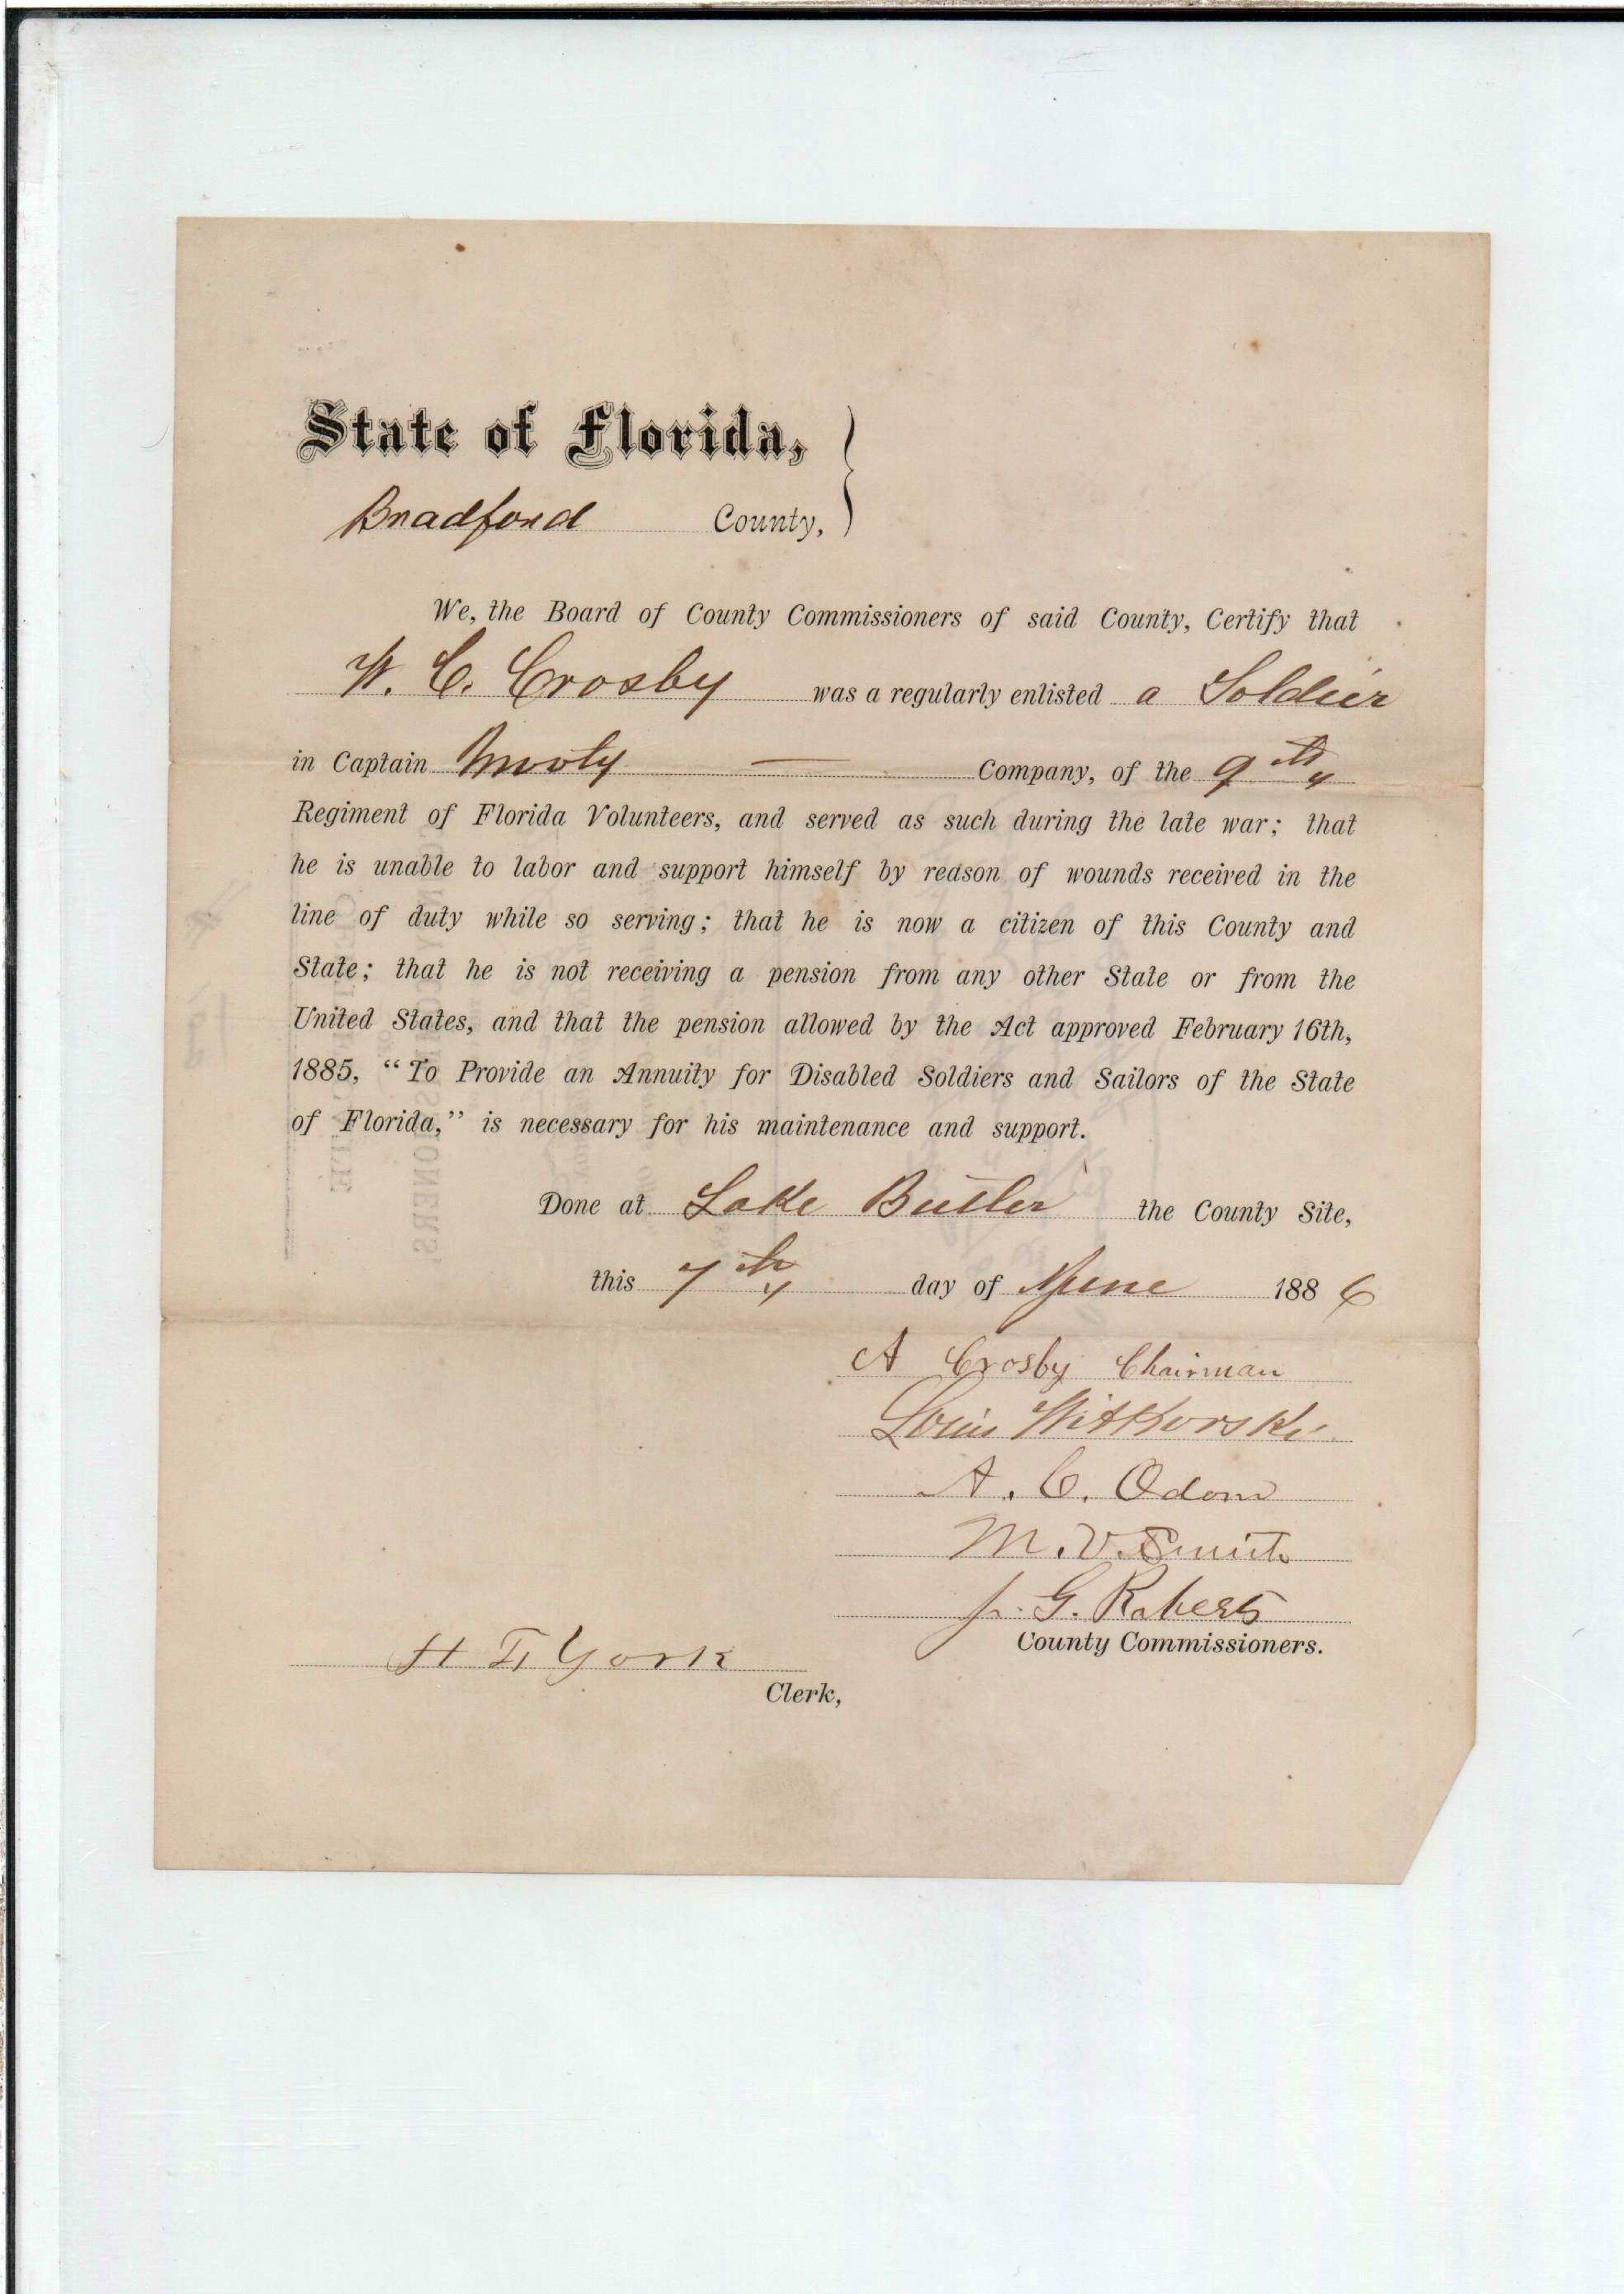 State of Florida,
Bradford County,
We, the Board of County Commissioners of said County, Certify that
W. C. Crosby was a regularly enlisted a Soldier
in Captain Mooty — Company, of the 9th
Regiment of Florida Volunteers, and served as such during the late war; that
he is unable to labor and support himself by reason of wounds received in the
line of duty while so serving; that he is now a citizen of this County and
State; that he is not receiving a pension from any other State or from the
United States, and that the pension allowed by the Act approved February 16th,
1885, “To Provide an Annuity for Disabled Soldiers and Sailors of the State
of Florida,” is necessary for his maintenance and support.
Done at Lake Butler the County Site,
this 7th day of June 1886
A Crosby Chairman
Louis Witkovski
A. C. Odom
M. V. Smith
J. G. Roberts
County Commissioners.
H F York
Clerk,